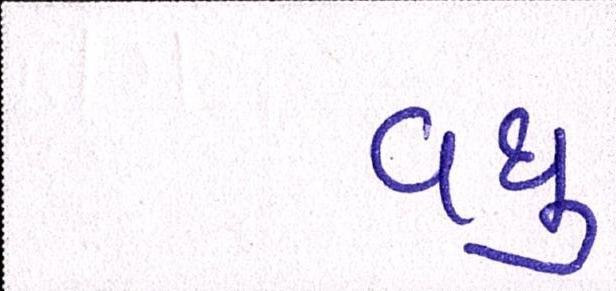 વધુ